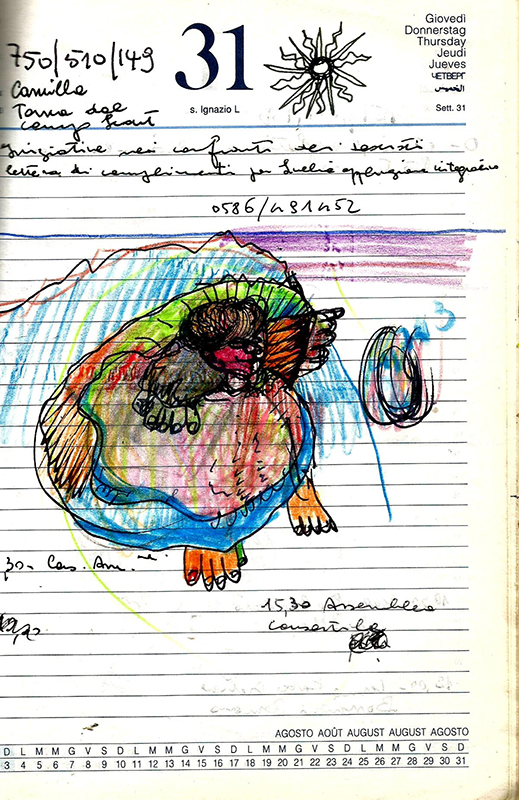 750/510/149
31
s. Ignazio L
Giovedì
Donnerstag
Thursday
Jeudi
Jueves
ЧЕТВЕРГ
الخميس
Sett. 31
Camilla
Torna dal
camp Scout
Iniziative nei confronti dei
lettera di complimenti per
0586/491452
3
,30
15,30 Assemblea
Consortile
AGOSTO AOÛT AUGUST AUGUST AGOSTO
D L M M G V S D L M M G V S D L M M G V S D L M M G V S D
3 4 5 6 7 8 9 10 11 12 13 14 15 16 17 18 19 20 21 22 23 24 25 26 27 28 29 30 31